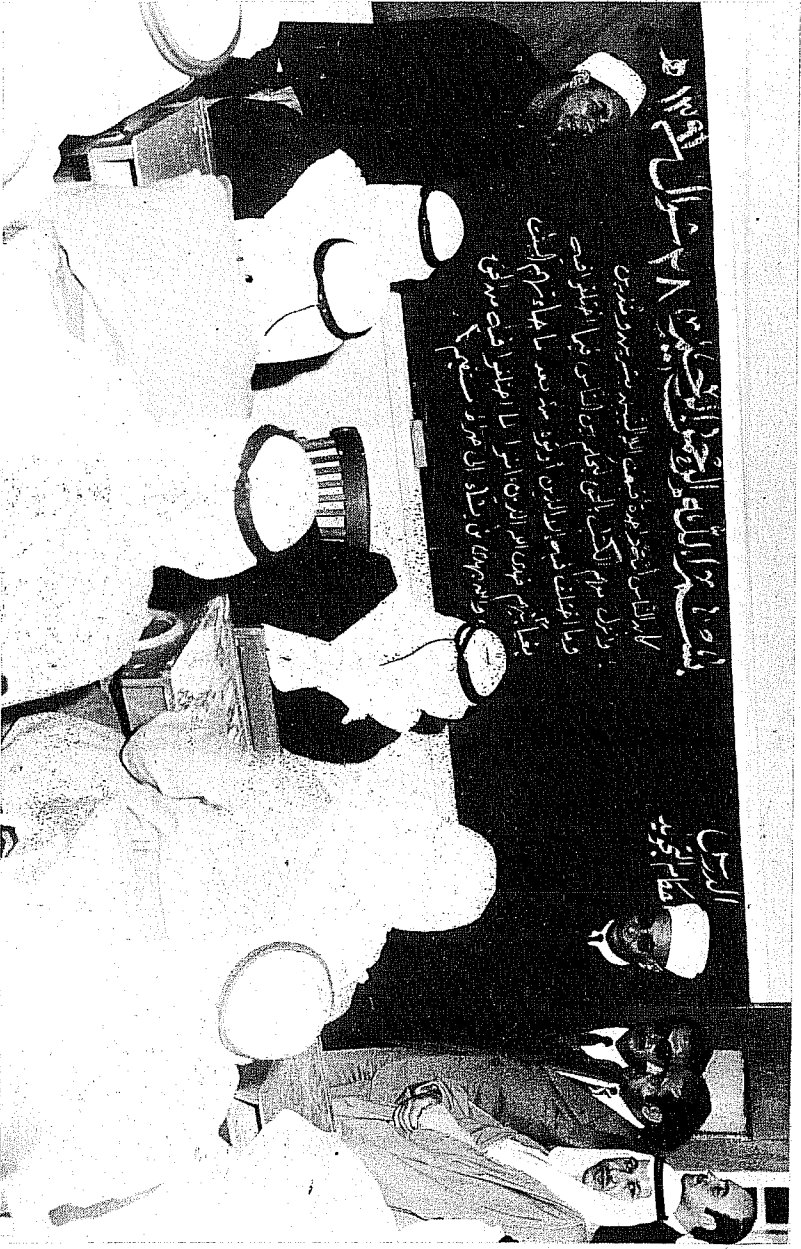 الدرس
بسم الله الرحمن الرحيم ٢٨ شوال سنة ١٣٩١ هـ
كان الناس أمة واحدة فبعث الله النبيين مبشرين ومنذرين
وأنزل معهم الكتاب بالحق ليحكم بين الناس فيما اختلفوا فيه
وما اختلف فيه إلا الذين أوتوه من بعد ما جاءتهم البينات
بغيا بينهم فهدى الله الذين آمنوا لما اختلفوا فيه من الحق
والله يهدي من يشاء إلى صراط مستقيم